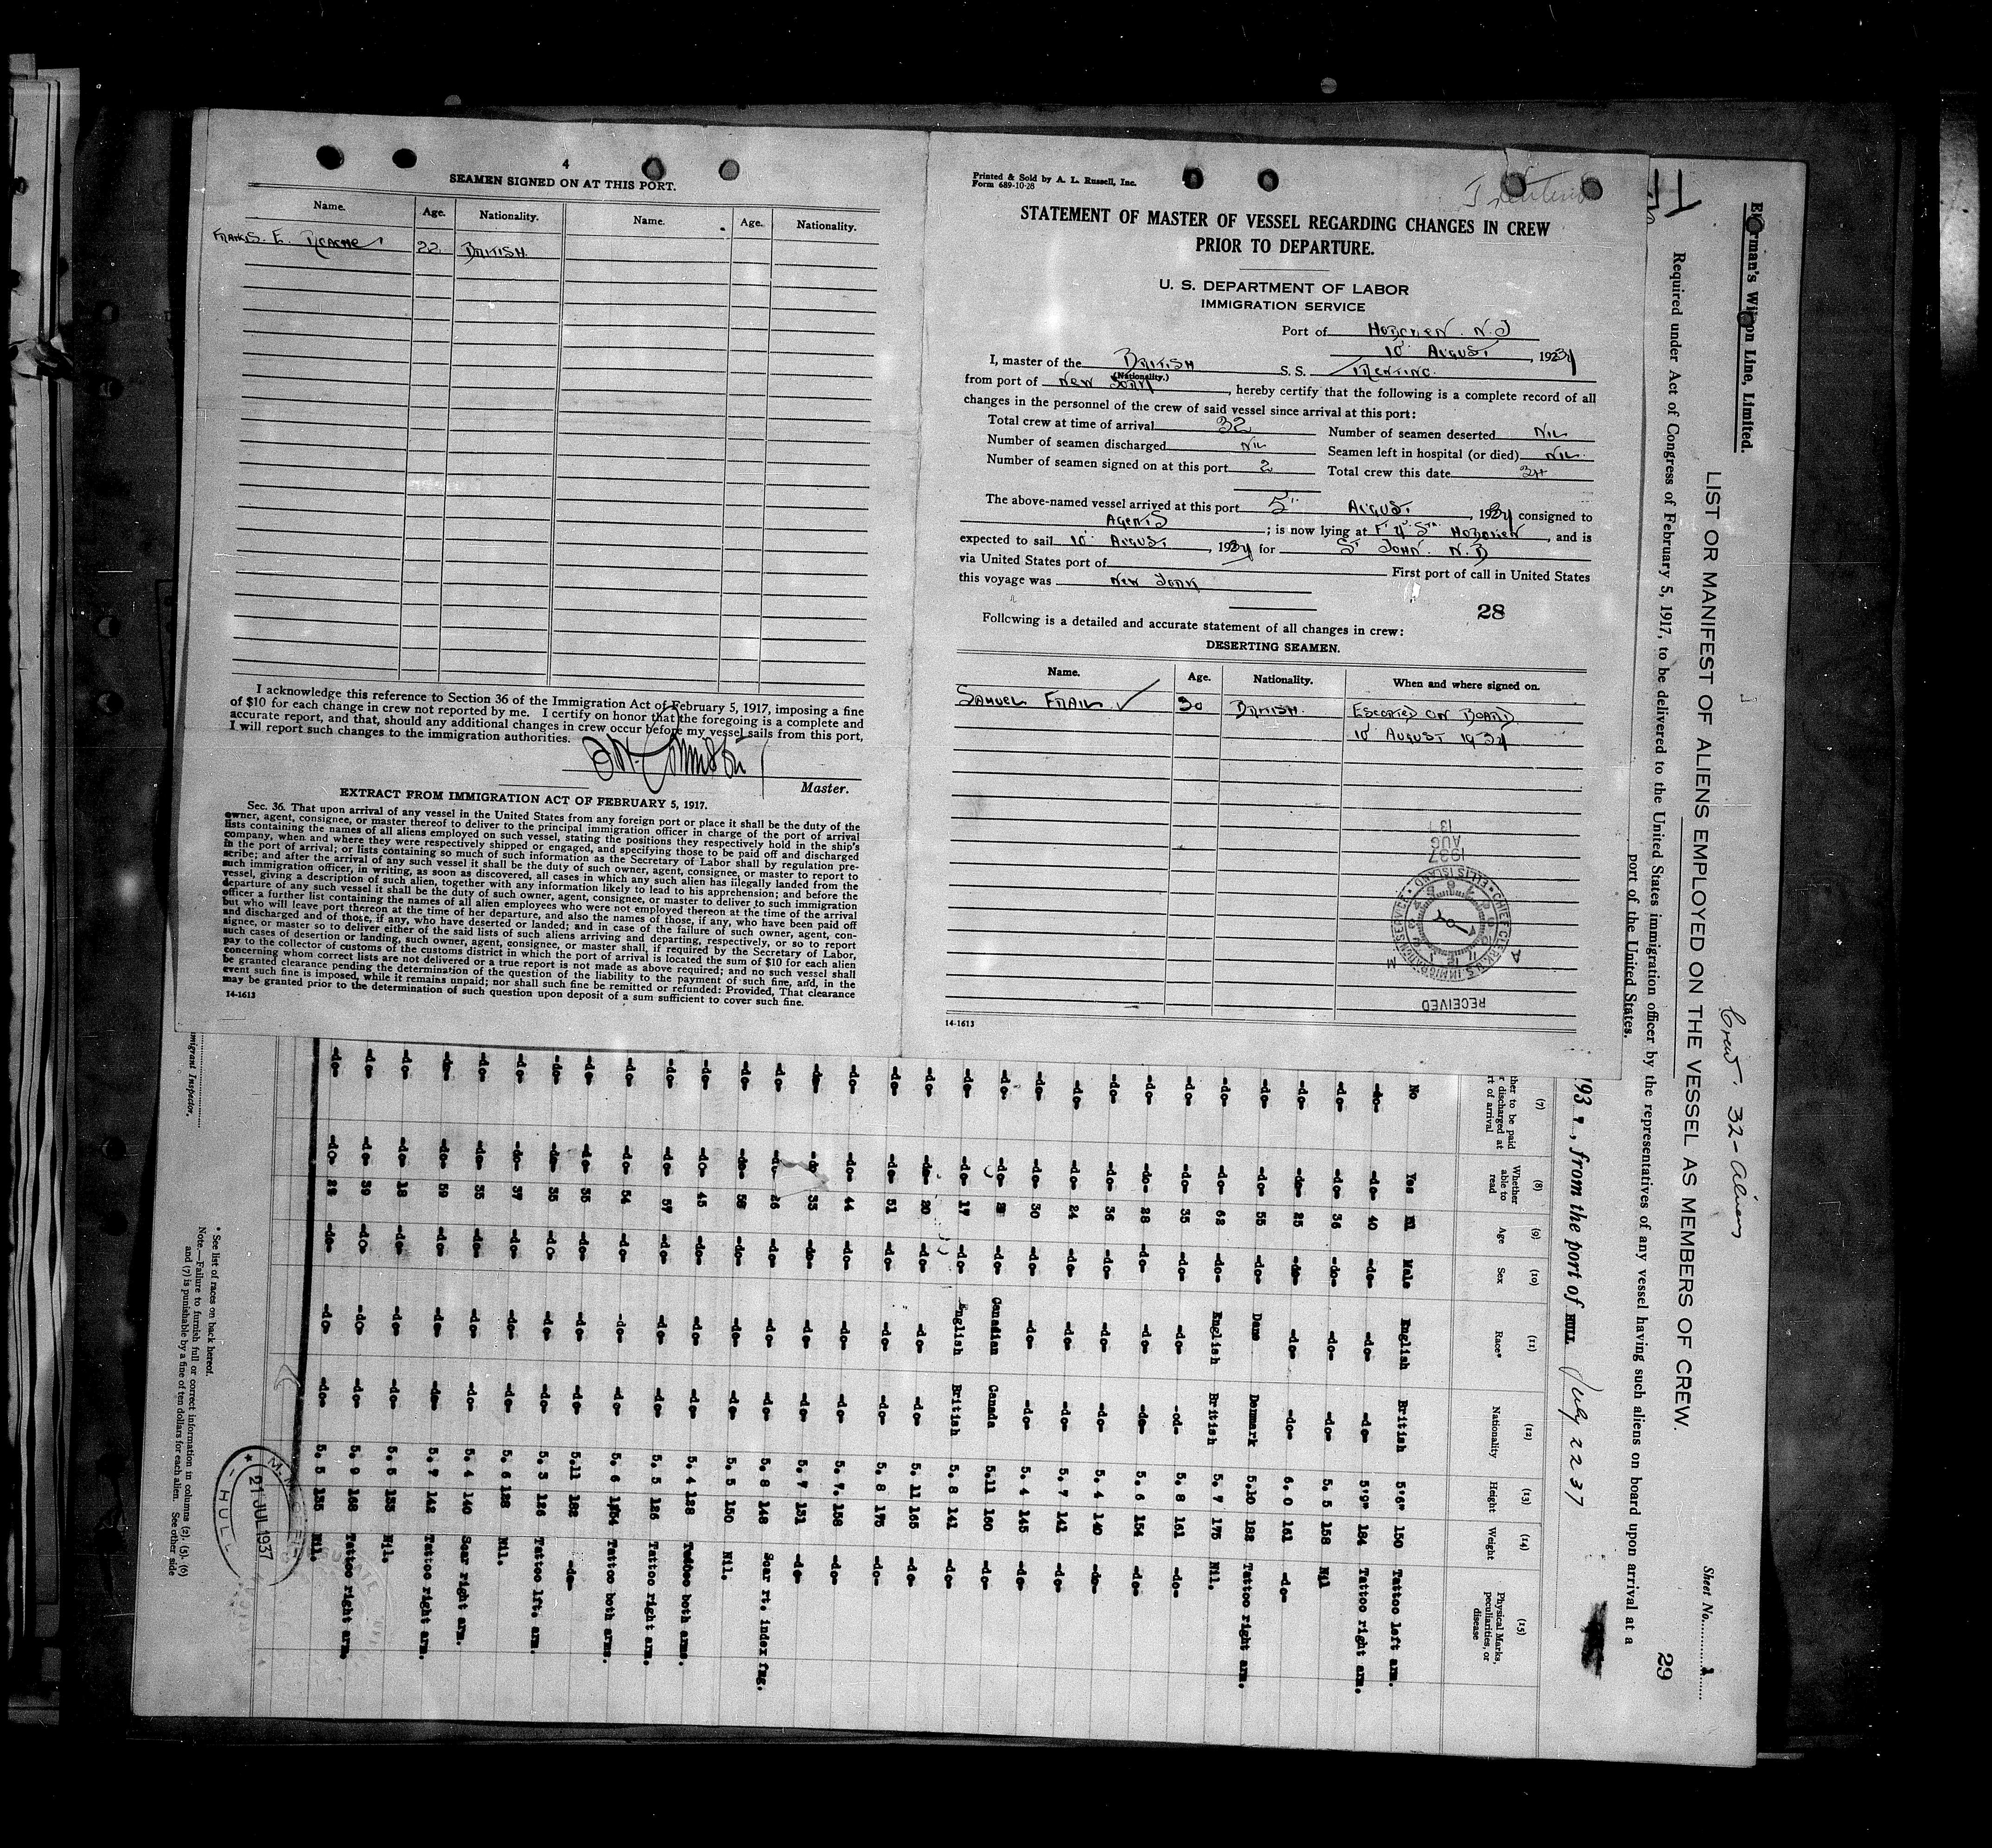 4
SEAMEN SIGNED ON AT THIS PORT.
Name. Age. Nationality. Name. Age. Nationality.
FRANCIS. E. ROACHE 22 BRITISH.
I acknowledge this reference to Section 36 of the Immigration Act of February 5, 1917, imposing a fine
of $10 for each change in crew not reported by me. I certify on honor that the foregoing is a complete and
accurate report, and that, should any additional changes in crew occur before my vessel sails from this port,
I will report such changes to the immigration authorities.
Master.
EXTRACT FROM IMMIGRATION ACT OF FEBRUARY 5, 1917.
Sec. 36. That upon arrival of any vessel in the United States from any foreign port or place it shall be the duty of the
owner, agent, consignee, or master thereof to deliver to the principal immigration officer in charge of the port of arrival
lists containing the names of all aliens employed on such vessel, stating the positions they respectively hold in the ship's
company, when and where they were respectively shipped or engaged, and specifying those to be paid off and discharged
in the port of arrival; or lists containing so much of such information as the Secretary of Labor shall by regulation pre-
scribe; and after the arrival of any such vessel it shall be the duty of such owner, agent, consignee, or master to report to
such immigration officer, in writing, as soon as discovered, all cases in which any such alien has illegally landed from the
vessel, giving a description of such alien, together with any information likely to lead to his apprehension; and before the
departure of any such vessel it shall be the duty of such owner, agent, consignee, or master to deliver to such immigration
officer a further list containing the names of all alien employees who were not employed thereon at the time of the arrival
but who will leave port thereon at the time of her departure, and also the names of those, if any, who have been paid off
and discharged and of those, if any, who have deserted or landed; and in case of the failure of such owner, agent, con-
signee, or master so to deliver either of the said lists of such aliens arriving and departing, respectively, or so to report
such cases of desertion or landing, such owner, agent, consignee, or master shall, if required by the Secretary of Labor,
pay to the collector of customs of the customs district in which the port of arrival is located the sum of $10 for each alien
concerning whom correct lists are not delivered or a true report is not made as above required; and no such vessel shall
be granted clearance pending the determination of the question of the liability to the payment of such fine, and, in the
event such fine is imposed, while it remains unpaid; nor shall such fine be remitted or refunded: Provided, That clearance
may be granted prior to the determination of such question upon deposit of a sum sufficient to cover such fine.
14-1613
Printed & Sold by A. L. Russell, Inc.
Form 689-10-28
STATEMENT OF MASTER OF VESSEL REGARDING CHANGES IN CREW
PRIOR TO DEPARTURE.
U. S. DEPARTMENT OF LABOR
IMMIGRATION SERVICE
Port of HOBOKEN. N.J
10 AUGUST, 1937
I, master of the BRITISH S.S. TRENTINO.
(Nationality.)
from port of NEW YORK, hereby certify that the following is a complete record of all
changes in the personnel of the crew of said vessel since arrival at this port:
Total crew at time of arrival 32 Number of seamen deserted NIL
Number of seamen discharged NIL Seamen left in hospital (or died) NIL.
Number of seamen signed on at this port 2 Total crew this date 34
The above-named vessel arrived at this port 5th AUGUST, 1937 consigned to
AGENTS; is now lying at HOBOKEN, and is
expected to sail 10 AUGUST, 1937 for ST JOHN. N.B
via United States port of First port of call in United States
this voyage was NEW YORK
28
Following is a detailed and accurate statement of all changes in crew:
DESERTING SEAMEN.
Name. Age. Nationality. When and where signed on.
SAMUEL FRAIL ✓ 30 BRITISH. ESCORTED ON BOARD
10 AUGUST 1937
1937
AUG
CHIEF CLERK U.S. IMMIGRATION SERVICE ELLIS ISLAND
RECEIVED
14-1613
Ellerman's Wilson Line, Limited.
LIST OR MANIFEST OF ALIENS EMPLOYED ON THE VESSEL AS MEMBERS OF CREW.
Required under Act of Congress of February 5, 1917, to be delivered to the United States immigration officer by the representatives of any vessel having such aliens on board upon arrival at a
port of the United States.
Crew. 32 - Aliens
Sheet No. 1
29
1937, from the port of HULL July 22 37
(7) (8) (9) (10) (11) (12) (13) (14) (15)
ther to be paid
r discharged at
rt of arrival
Whether
able to
read
Age Sex Race* Nationality Height Weight Physical Marks,
peculiarities, or
disease
No Yes Male English British 5'6" 150 Tattoo left arm.
-do- -do- 40 -do- -do- -do- 5'9" 184 Tattoo right arm.
-do- -do- 36 -do- -do- -do- 5. 5 158 Nil
-do- -do- 25 -do- -do- -do- 6. 0 161 -do-
-do- -do- 55 -do- Dane Denmark 5.10 182 Tattoo right arm.
-do- -do- 62 -do- English British 5. 7 175 Nil.
-do- -do- 35 -do- -do- -do- 5. 8 161 -do-
-do- -do- 28 -do- -do- -do- 5. 6 154 -do-
-do- -do- 36 -do- -do- -do- 5. 4 140 -do-
-do- -do- 24 -do- -do- -do- 5. 7 141 -do-
-do- -do- 30 -do- -do- -do- 5. 4 145 -do-
-do- -do- -do- Canadian Canada 5.11 160 -do-
-do- -do- 17 -do- English British 5. 8 141 -do-
-do- -do- 20 -do- -do- -do- 5. 11 165 -do-
-do- -do- 51 -do- -do- -do- 5. 8 175 -do-
-do- -do- 44 -do- -do- -do- 5. 7. 158 -do-
-do- -do- 33 -do- -do- -do- 5. 7 151 -do-
-do- -do- 26 -do- -do- -do- 5. 8 148 Scar rt. index fng.
-do- -do- -do- -do- -do- 5. 5 150 Nil.
-do- -do- 45 -do- -do- -do- 5. 4 128 Tattoo both arms.
-do- -do- 57 -do- -do- -do- 5. 5 126 Tattoo right arm.
-do- -do- 54 -do- -do- -do- 5. 6 Tattoo both arms.
-do- -do- 35 -do- -do- -do- 5.11 182 -do-
-do- -do- 35 -do- -do- -do- 5. 3 126 Tattoo lft. arm.
-do- -do- 37 -do- -do- -do- 5. 6 128 Nil.
-do- -do- 35 -do- -do- -do- 5. 4 140 Scar right arm.
-do- -do- 59 -do- -do- -do- 5. 7 142 Tattoo right arm.
-do- -do- 18 -do- -do- -do- 5. 5 135 Nil.
-do- -do- 39 -do- -do- -do- 5. 9 168 Tattoo right arm.
-do- -do- 22 -do- -do- -do- 5. 5 135 Nil.
migrant Inspector.
* See list of races on back hereof.
Note.—Failure to furnish full or correct information in columns (2), (5), (6)
and (7) is punishable by a fine of ten dollars for each alien. See other side
21 JUL 1937
HULL